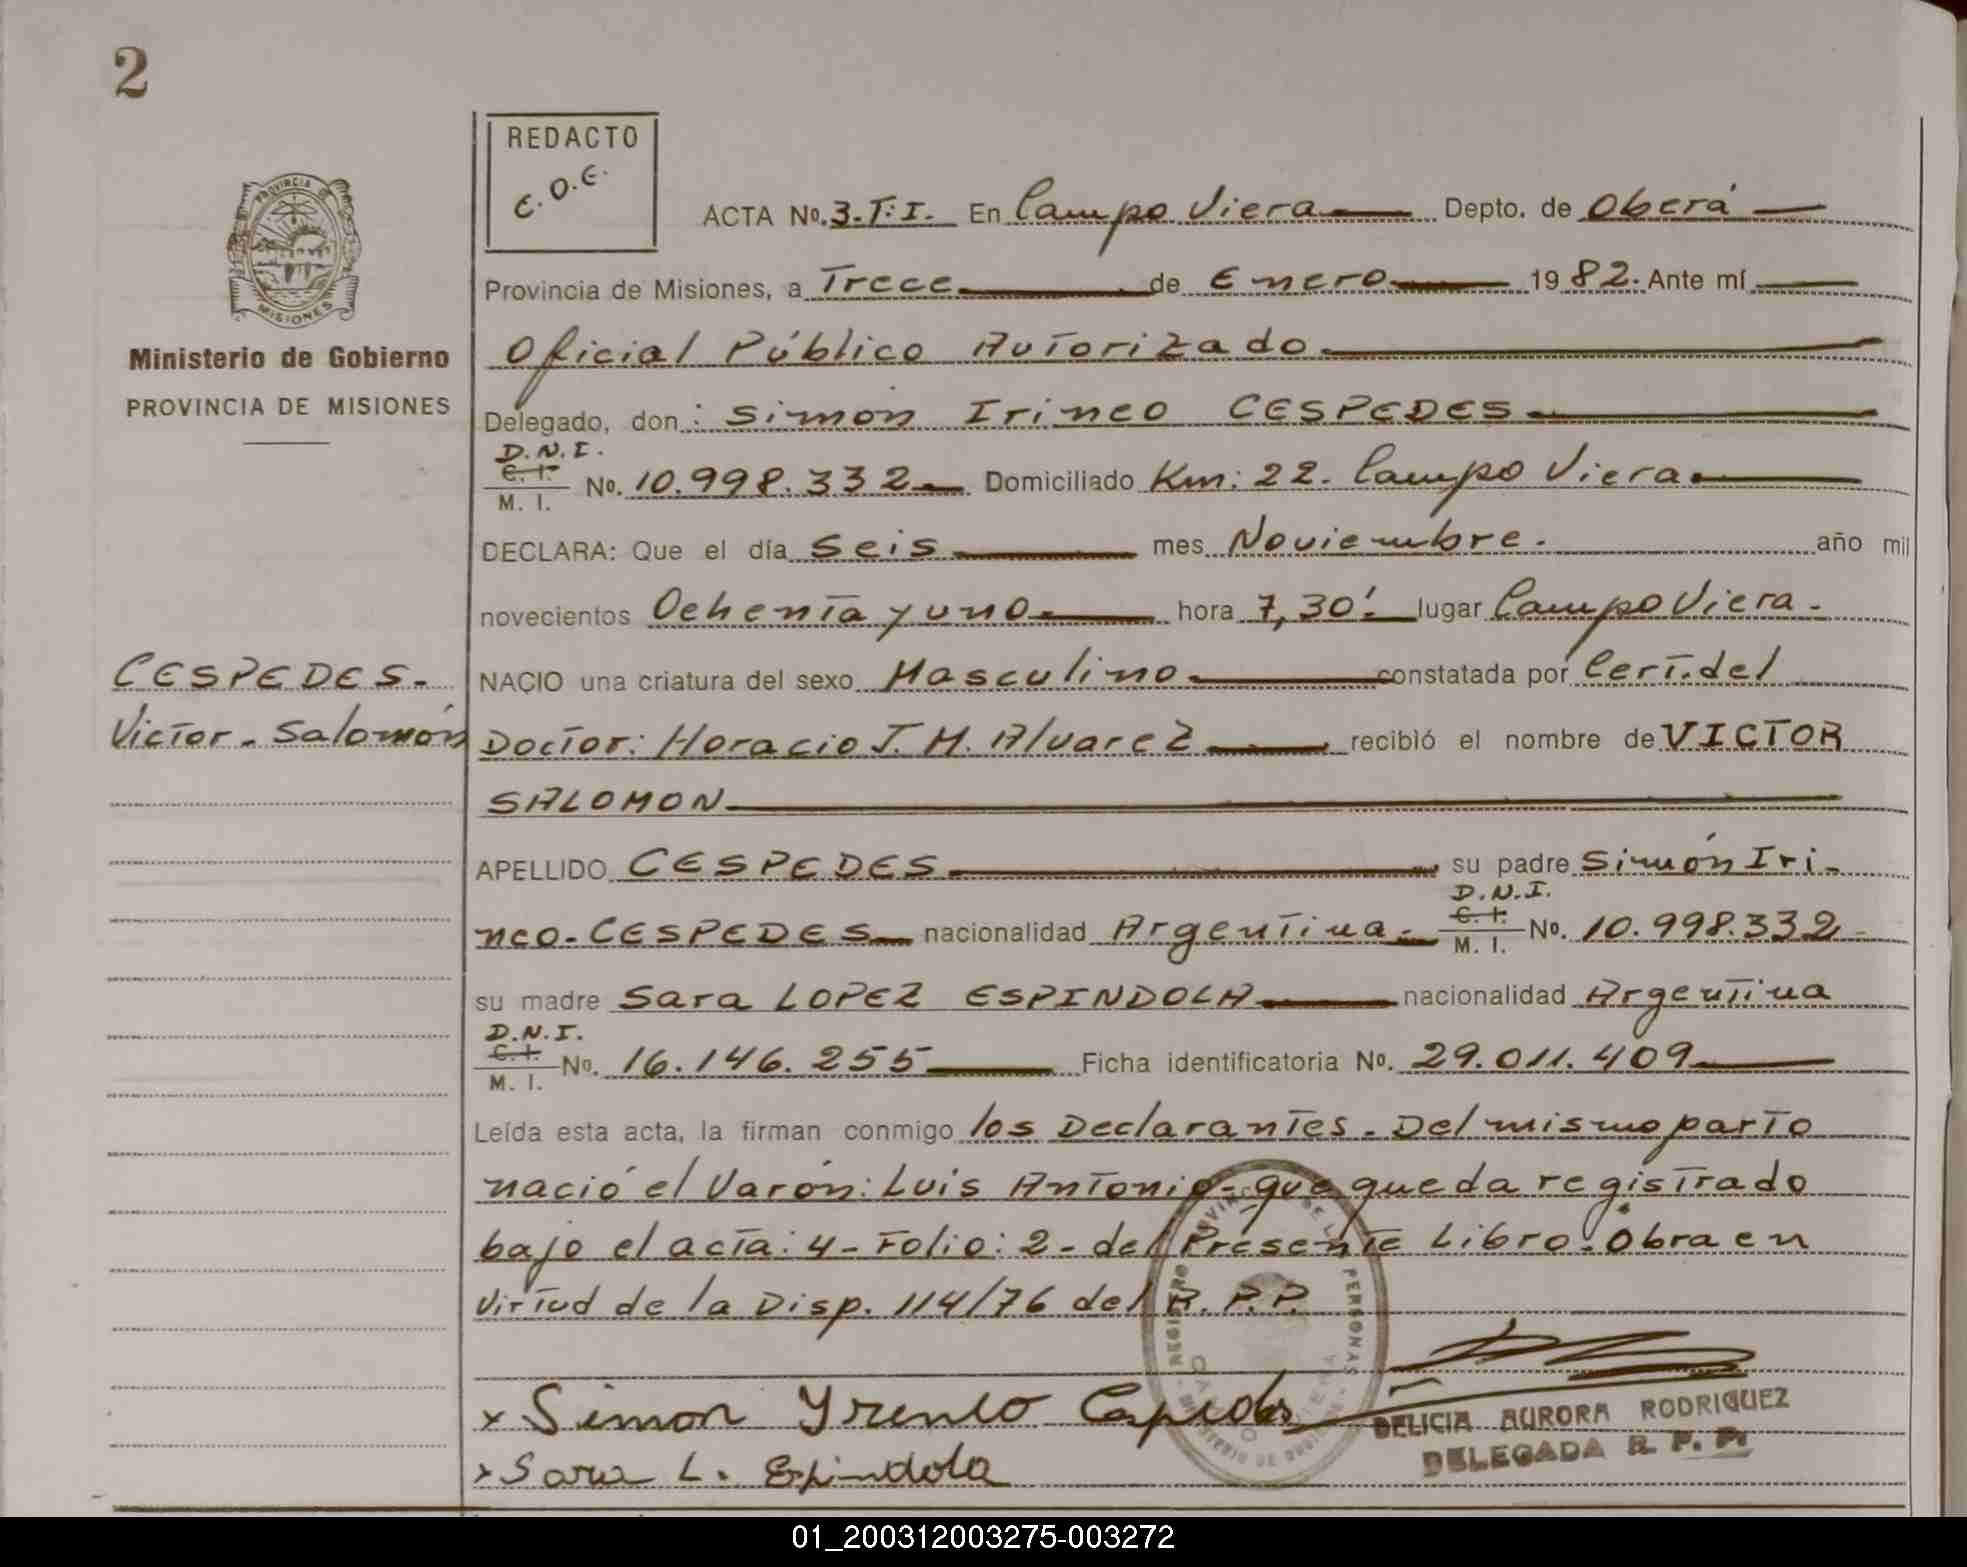 2
REDACTO
E.O.E.
ACTA No. 3.T:I. En Campo Viera Depto. de Oberá
Provincia de Misiones, a Trece de Enero 1982. Ante mí
Oficial Público Autorizado
Delegado, don: Simón Irineo CESPEDES
D.N.I.
C. I.
M. I.
No. 10.998.332 Domiciliado Km: 22. Campo Viera
DECLARA: Que el día Seis mes Noviembre. año mil
novecientos Ochenta y uno hora 7,30'. lugar Campo Viera.
CESPEDES.
Victor. Salomón
NACIO una criatura del sexo Masculino constatada por Cert. del
Doctor: Horacio J. M. Alvarez recibió el nombre de VICTOR
SALOMON
APELLIDO CESPEDES su padre Simón Iri-
D.N.I.
C. I.
M. I.
neo. CESPEDES nacionalidad Argentina. No. 10.998.332
su madre Sara LOPEZ ESPINDOLA nacionalidad Argentina
D.N.I.
C. I.
M. I.
No. 16.146.255 Ficha identificatoria No. 29.011.409
Leída esta acta, la firman conmigo los Declarantes. Del mismo parto
nació el Varón: Luis Antonio- que queda registrado
bajo el acta: 4- Folio: 2- del Presente Libro. Obra en
Virtud de la Disp. 114/76 del R. P.P.
x Simon Yreneo Cespedes
x Sara L. Espindola
DELICIA AURORA RODRIGUEZ
DELEGADA R. P. P.
PROVINCIA DE
MISIONES
Ministerio de Gobierno
PROVINCIA DE MISIONES
01_200312003275-003272